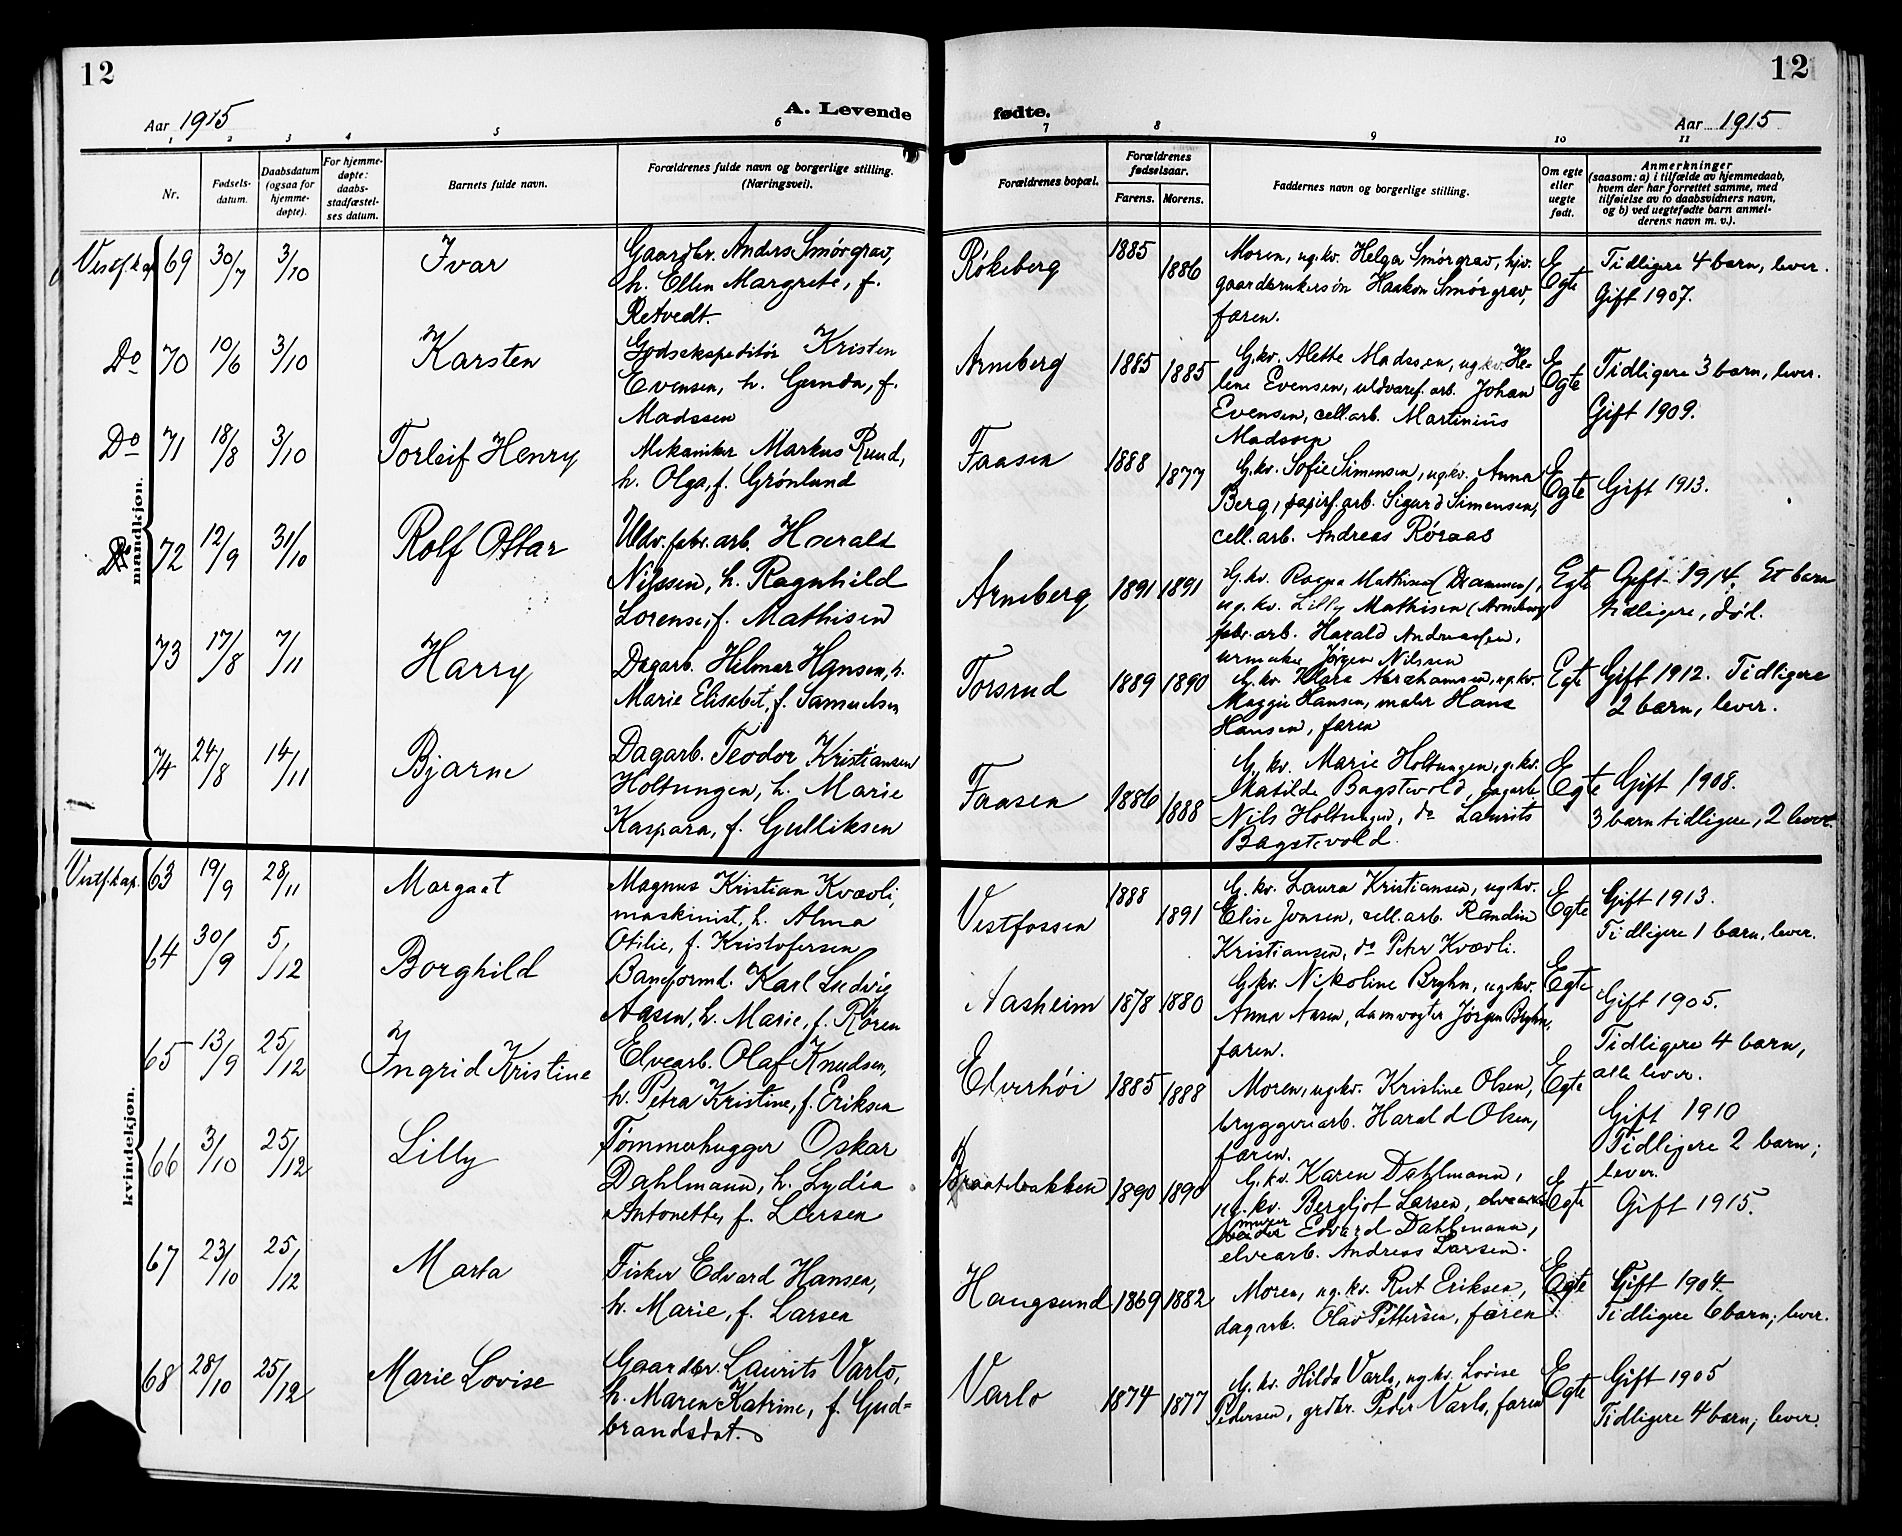 12
Aar 1915
A. Levende
1 2 3 4 5 6
Nr.
Fødsels-
datum.
Daabsdatum
(ogsaa for
hjemme-
døpte).
For hjemme-
døpte:
daabs-
stadfæstel-
ses datum.
Barnets fulde navn.
Forældrenes fulde navn og borgerlige stilling.
(Næringsvei).
mandkjøn.
Vestf.kap. 69 30/7 3/10 Ivar
Gaardbr. Anders Smörgrav,
h. Ellen Margrete, f.
Retvedt.
Do 70 10/6 3/10 Karsten
Godsekspeditör Kristen
Evensen, h. Gunda, f.
Madssen
Do 71 18/8 3/10 Torleif Henry
Mekaniker Markus Ruud,
h. Olga, f. Grönlund
Do 72 12/9 31/10 Rolf Ottar
Uldv.fabr.arb. Harald
Nilssen, h. Ragnhild
Lorense, f. Mathisen
73 17/8 7/11 Harry
Dagarb. Hilmar Hansen, h.
Marie Elisabet, f. Samuelsen
74 24/8 14/11 Bjarne
Dagarb. Teodor Kristiansen
Holtungen, h. Marie
Kaspara, f. Gulliksen
kvindekjøn.
Vestf.kap. 63 19/9 28/11 Margaat
Magnus Kristian Kvævli,
maskinist, h. Alma
Otilie, f. Kristofersen
64 30/9 5/12 Borghild
Baneformd. Karl Ludvig
Aasen, h. Marie, f. Rören
65 13/9 25/12 Ingrid Kristine
Elvearb. Olaf Knudsen,
h. Petra Kristine, f. Eriksen
66 3/10 25/12 Lilly
Tömmerhugger Oskar
Dahlmann, h. Lydia
Antonette, f. Larsen
67 23/10 25/12 Marta
Fisker Edvard Hansen,
h. Marie, f. Larsen
68 28/10 25/12 Marie Lovise
Gaardbr. Laurits Varlo,
h. Maren Katrine, f. Gud-
brandsdat.
12
fødte.
Aar 1915
7 8 9 10 11
Forældrenes bopæl.
Forældrenes
fødselsaar.
Farens. Morens.
Faddernes navn og borgerlige stilling.
Om egte
eller
uegte
født.
Anmerkninger
(saasom: a) i tilfælde av hjemmedaab,
hvem der har forrettet samme, med
tilføielse av to daabsvidners navn,
og b) ved uegtefødte barn anmel-
derens navn m. v.).
Rökeberg 1885 1886
Moren, ug.kv. Helga Smörgrav, hjv.
gaardbrukersön Haakon Smörgrav,
faren.
Egte
Tidligere 4 barn, lever.
Gift 1907.
Arneberg 1885 1885
G.kv. Alette Madssen, ug.kv. He-
lene Evensen, uldvaref.arb. Johan
Evensen, cell.arb. Martinius
Madssen
Egte
Tidligere 3 barn, lever.
Gift 1909.
Faasen 1888 1877
G.kv. Sofie Simensen, ug.kv. Anna
Berg, papirf.arb. Sigurd Simensen,
cell.arb. Andreas Röraas
Egte
Gift 1913.
Arneberg 1891 1891
G.kv. Ragna Mathisen (Drammen),
ug.kv. Lilly Mathisen (Arneberg
fabr.arb. Harald Andreassen,
urmaker Jörgen Nilssen
Egte
Gift 1914. Et barn
tidligere, död.
Torsrud 1889 1890
G.kv. Klara Abrahamsen, ug.kv.
Maggie Hansen, maler Hans
Hansen, faren
Egte
Gift 1912. Tidligere
2 barn, lever.
Faasen 1886 1888
G.kv. Marie Holtungen, g.kv.
Matilde Bagstevold, dagarb.
Nils Holtungen, do Laurits
Bagstevold.
Egte
Gift 1908.
3 barn tidligere, 2 lever.
Vestfossen 1888 1891
G.kv. Laura Kristiansen, ug.kv.
Elise Jonsen, cell.arb. Randin
Kristiansen, do Peter Kvævli.
Egte
Gift 1913.
Tidligere 1 barn, lever.
Aasheim 1878 1880
G.kv. Nikoline Bryhn, ug.kv.
Anna Aasen, damvogter Jörgen Bryhn,
faren.
Egte
Gift 1905.
Tidligere 4 barn,
alle lever.
Elverhöi 1885 1888
Moren, ug.kv. Kristine Olsen,
bryggeriarb. Harald Olsen,
faren.
Egte
Gift 1910
Tidligere 2 barn;
lever.
Braatebakken 1890 1890
G.kv. Karen Dahlmann,
ug.kv. Bergljot Larsen,
murer Edvard Dahlmann,
elvearb. Andreas Larsen.
Egte
Gift 1915.
Haugsund 1869 1882
Moren, ug.kv. Rut Eriksen,
dagarb. Olav Pettersen, faren.
Egte
Gift 1904.
Tidligere 6 barn; lever.
Varlo 1874 1877
G.kv. Hilda Varlo, ug.kv. Lovise
Pedersen, grdbr. Peder Varlo, faren
Egte
Gift 1905
Tidligere 4 barn; lever.